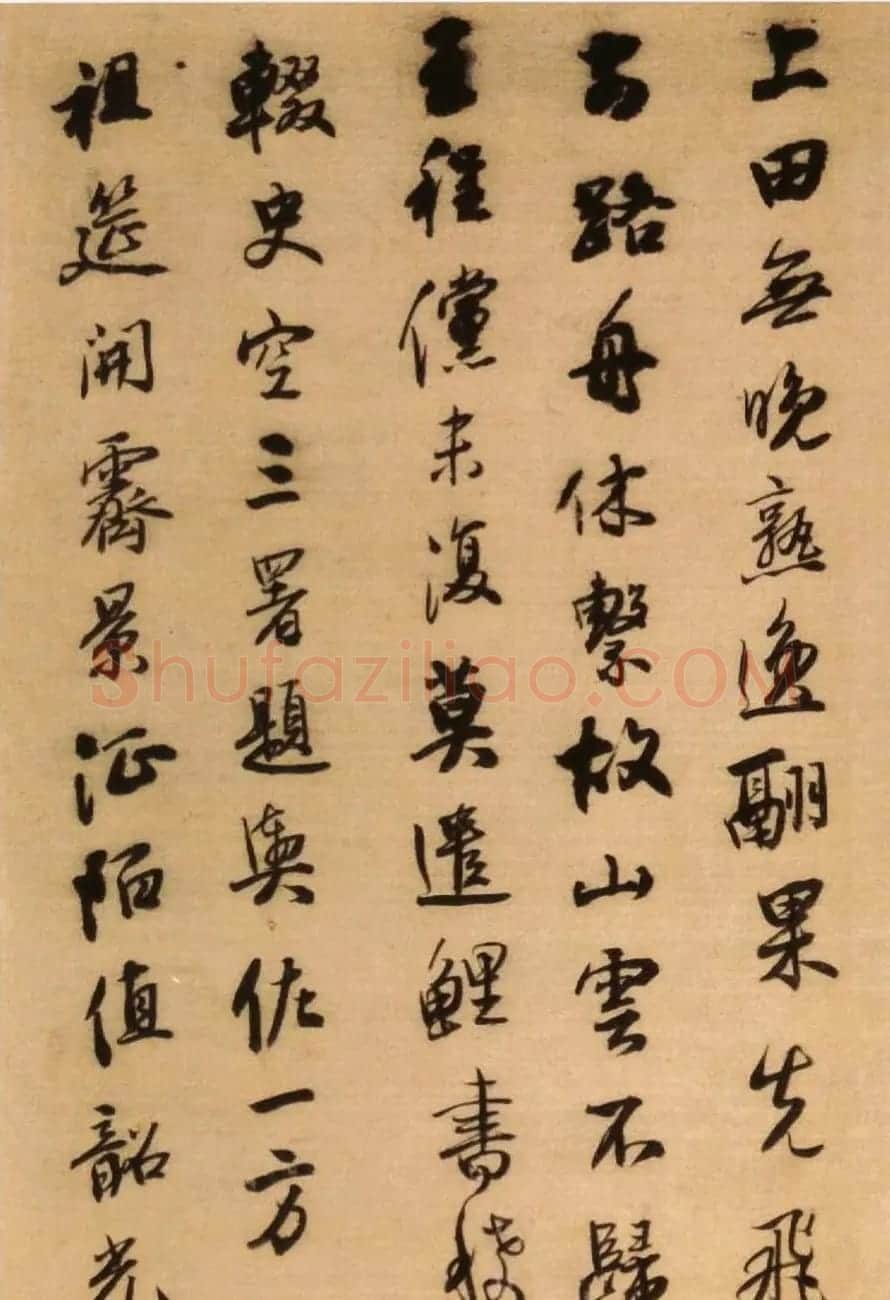 上田無晚熟逸翮果先飛
路舟休繫故山雲不歸
王程儻未復莫遣鯉書稀
輟史空三署題輿佐一方
祖筵開霽景征陌值韶光
Shufaziliao.COM